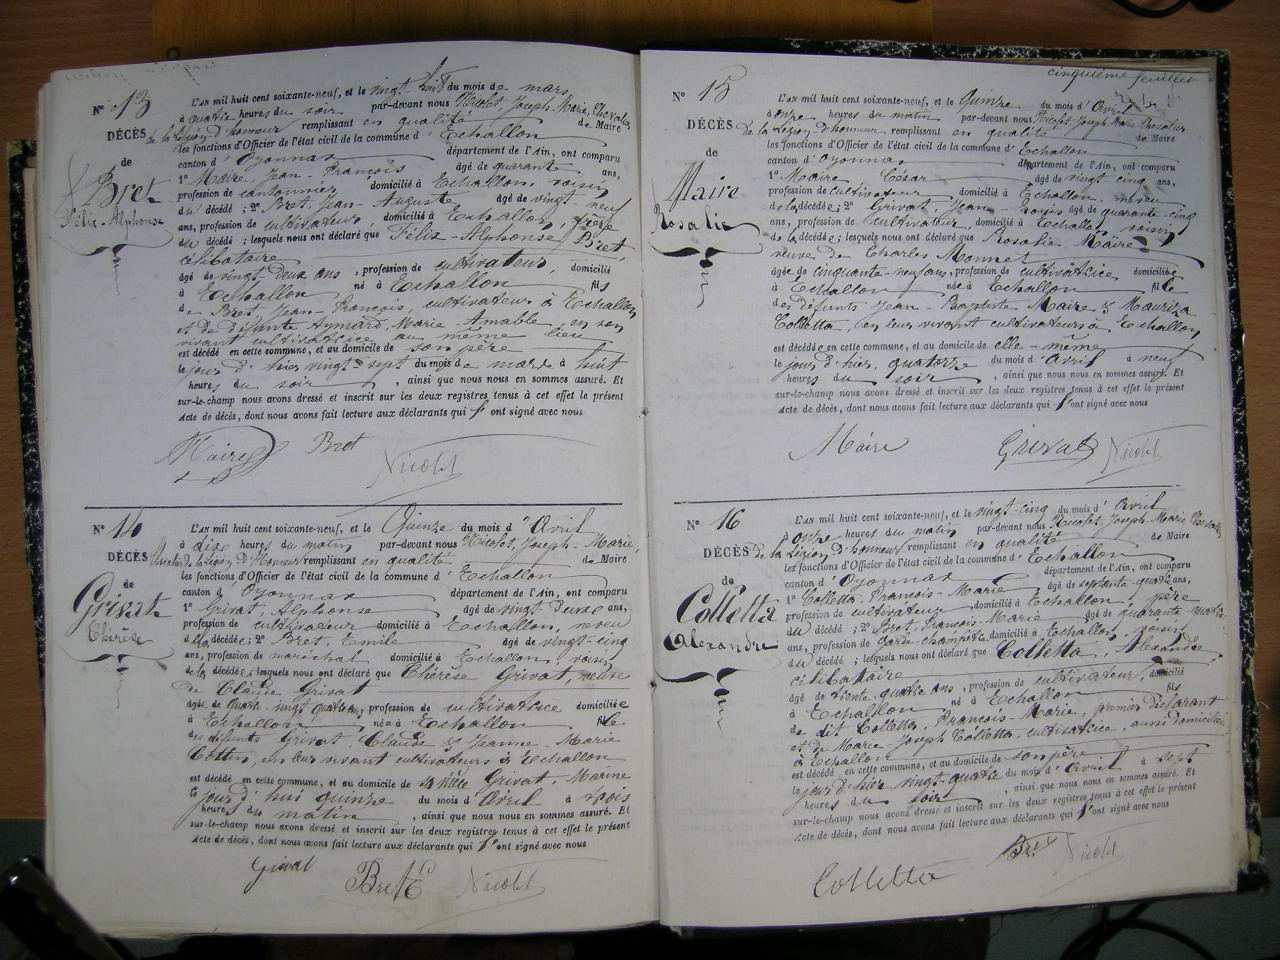 N° 13
DÉCÈS
de
Bret
Félix Alphonse
L'AN mil huit cent soixante-neuf, et le vingt huit du mois de mars
à quatre heures du soir par-devant nous Nicolet, Joseph, Marie, Chevalier
de la Légion d'honneur remplissant en qualité de Maire
les fonctions d'Officier de l'état civil de la commune d'Echallon
canton d'Oyonnax département de l'Ain, ont comparu
1° Maire, Jean-François âgé de quarante ans,
profession de cantonnier domicilié à Echallon, voisin
du décédé; 2° Bret, Jean-Auguste âgé de vingt-neuf
ans, profession de cultivateur domicilié à Echallon, frère
du décédé; lesquels nous ont déclaré que Félix Alphonse Bret,
célibataire
âgé de vingt deux ans, profession de cultivateur, domicilié
à Echallon, né à Echallon fils
de Bret, Jean-François, cultivateur à Echallon
et de défunte Aymard, Marie Amable, en son
vivant cultivatrice au même lieu
est décédé en cette commune, et au domicile de son père
le jour d'hier vingt-sept du mois de mars à huit
heures du soir, ainsi que nous nous en sommes assuré. Et
sur-le-champ nous avons dressé et inscrit sur les deux registres tenus à cet effet le présent
Acte de décès, dont nous avons fait lecture aux déclarants qui l'ont signé avec nous
Maire Bret Nicolet
N° 14
DÉCÈS
de
Grivat
Thérèse
L'AN mil huit cent soixante-neuf, et le Quinze du mois d'Avril
à dix heures du matin par-devant nous Nicolet, Joseph-Marie,
Chevalier de la Légion d'Honneur remplissant en qualité de Maire
les fonctions d'Officier de l'état civil de la commune d'Echallon
canton d'Oyonnax département de l'Ain, ont comparu
1° Grivat, Alphonse âgé de vingt deux ans,
profession de cultivateur domicilié à Echallon, neveu
de la décédée; 2° Bret, Emile âgé de vingt-cinq
ans, profession de maréchal domicilié à Echallon, voisin
de la décédée; lesquels nous ont déclaré que Thérèse Grivat, veuve
de Claude Grivat
âgée de quatre-vingt quatre ans, profession de cultivatrice domiciliée
à Echallon née à Echallon fille
des défunts Grivat, Claude & Jeanne-Marie
Cottin, en leur vivant cultivateurs à Echallon
est décédée en cette commune, et au domicile de Grivat, Marine
le jour d'hui quinze du mois d'Avril à trois
heures du matin, ainsi que nous nous en sommes assuré. Et
sur-le-champ nous avons dressé et inscrit sur les deux registres tenus à cet effet le présent
Acte de décès, dont nous avons fait lecture aux déclarants qui l'ont signé avec nous
Grivat Bret E Nicolet
cinquième feuillet
N° 15
DÉCÈS
de
Maire
Rosalie
L'AN mil huit cent soixante-neuf, et le Quinze du mois d'Avril
à onze heures du matin par-devant nous Nicolet, Joseph Marie Chevalier
de la Légion d'honneur, remplissant en qualité de Maire
les fonctions d'Officier de l'état civil de la commune d'Echallon
canton d'Oyonnax département de l'Ain, ont comparu
1° Maire César âgé de vingt cinq ans,
profession de cultivateur domicilié à Echallon, neveu
de la décédée; 2° Grivat, Jean-Louis âgé de quarante cinq
ans, profession de cultivateur, domicilié à Echallon, voisin
de la décédée; lesquels nous ont déclaré que Rosalie Maire
veuve de Charles Monnet
âgée de cinquante-neuf ans, profession de cultivatrice domiciliée
à Echallon née à Echallon fille
des défunts Jean-Baptiste Maire &
Colletta, en leur vivant cultivateurs à Echallon
est décédée en cette commune, et au domicile de elle-même
le jour d'hier, quatorze du mois d'Avril à neuf
heures du soir, ainsi que nous nous en sommes assuré. Et
sur-le-champ nous avons dressé et inscrit sur les deux registres tenus à cet effet le présent
Acte de décès, dont nous avons fait lecture aux déclarants qui l'ont signé avec nous
Maire Grivat Nicolet
N° 16
DÉCÈS
de
Colletta
Alexandre
L'AN mil huit cent soixante-neuf, et le vingt-cinq du mois d'Avril
à onze heures du matin par-devant nous Nicolet, Joseph Marie, Chevalier
de la Légion d'honneur remplissant en qualité de Maire
les fonctions d'Officier de l'état civil de la commune d'Echallon
canton d'Oyonnax département de l'Ain, ont comparu
1° Colletta, François-Marie âgé de septante quatre ans,
profession de cultivateur, domicilié à Echallon, père
du décédé; 2° Bret, François-Marie âgé de quarante
ans, profession de garde-champêtre, domicilié à Echallon, voisin
du décédé; lesquels nous ont déclaré que Colletta, Alexandre,
célibataire
âgé de trente quatre ans, profession de cultivateur, domicilié
à Echallon né à Echallon fils
de dit Colletta, François-Marie, premier déclarant
et de Marie Joseph Colletta, cultivatrice, aussi domiciliée
à Echallon
est décédé en cette commune, et au domicile de son père
le jour d'hier vingt-quatre du mois d'Avril à sept
heures du soir, ainsi que nous nous en sommes assuré. Et
sur-le-champ nous avons dressé et inscrit sur les deux registres tenus à cet effet le présent
Acte de décès, dont nous avons fait lecture aux déclarants qui l'ont signé avec nous
Colletta Bret Nicolet